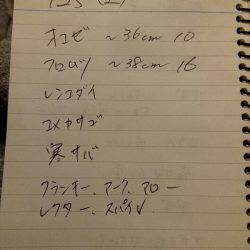 125 (土)
オコゼ ~36cm 10
クロムツ ~38cm 16
レンコダイ
ユメカサゴ
寒サバ
クランキー、マーク、マロー
レクター、スパイV